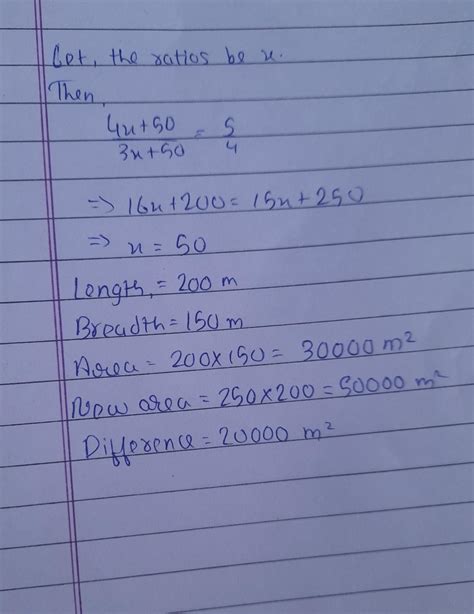 Let, the ratios be x.
Then,
4x+50 / 3x+50 = 5/4
=> 16x+200 = 15x+250
=> x = 50
Length, = 200 m
Breadth = 150 m
Area = 200×150 = 30000 m²
New area = 250×200 = 50000 m²
Difference = 20000 m²